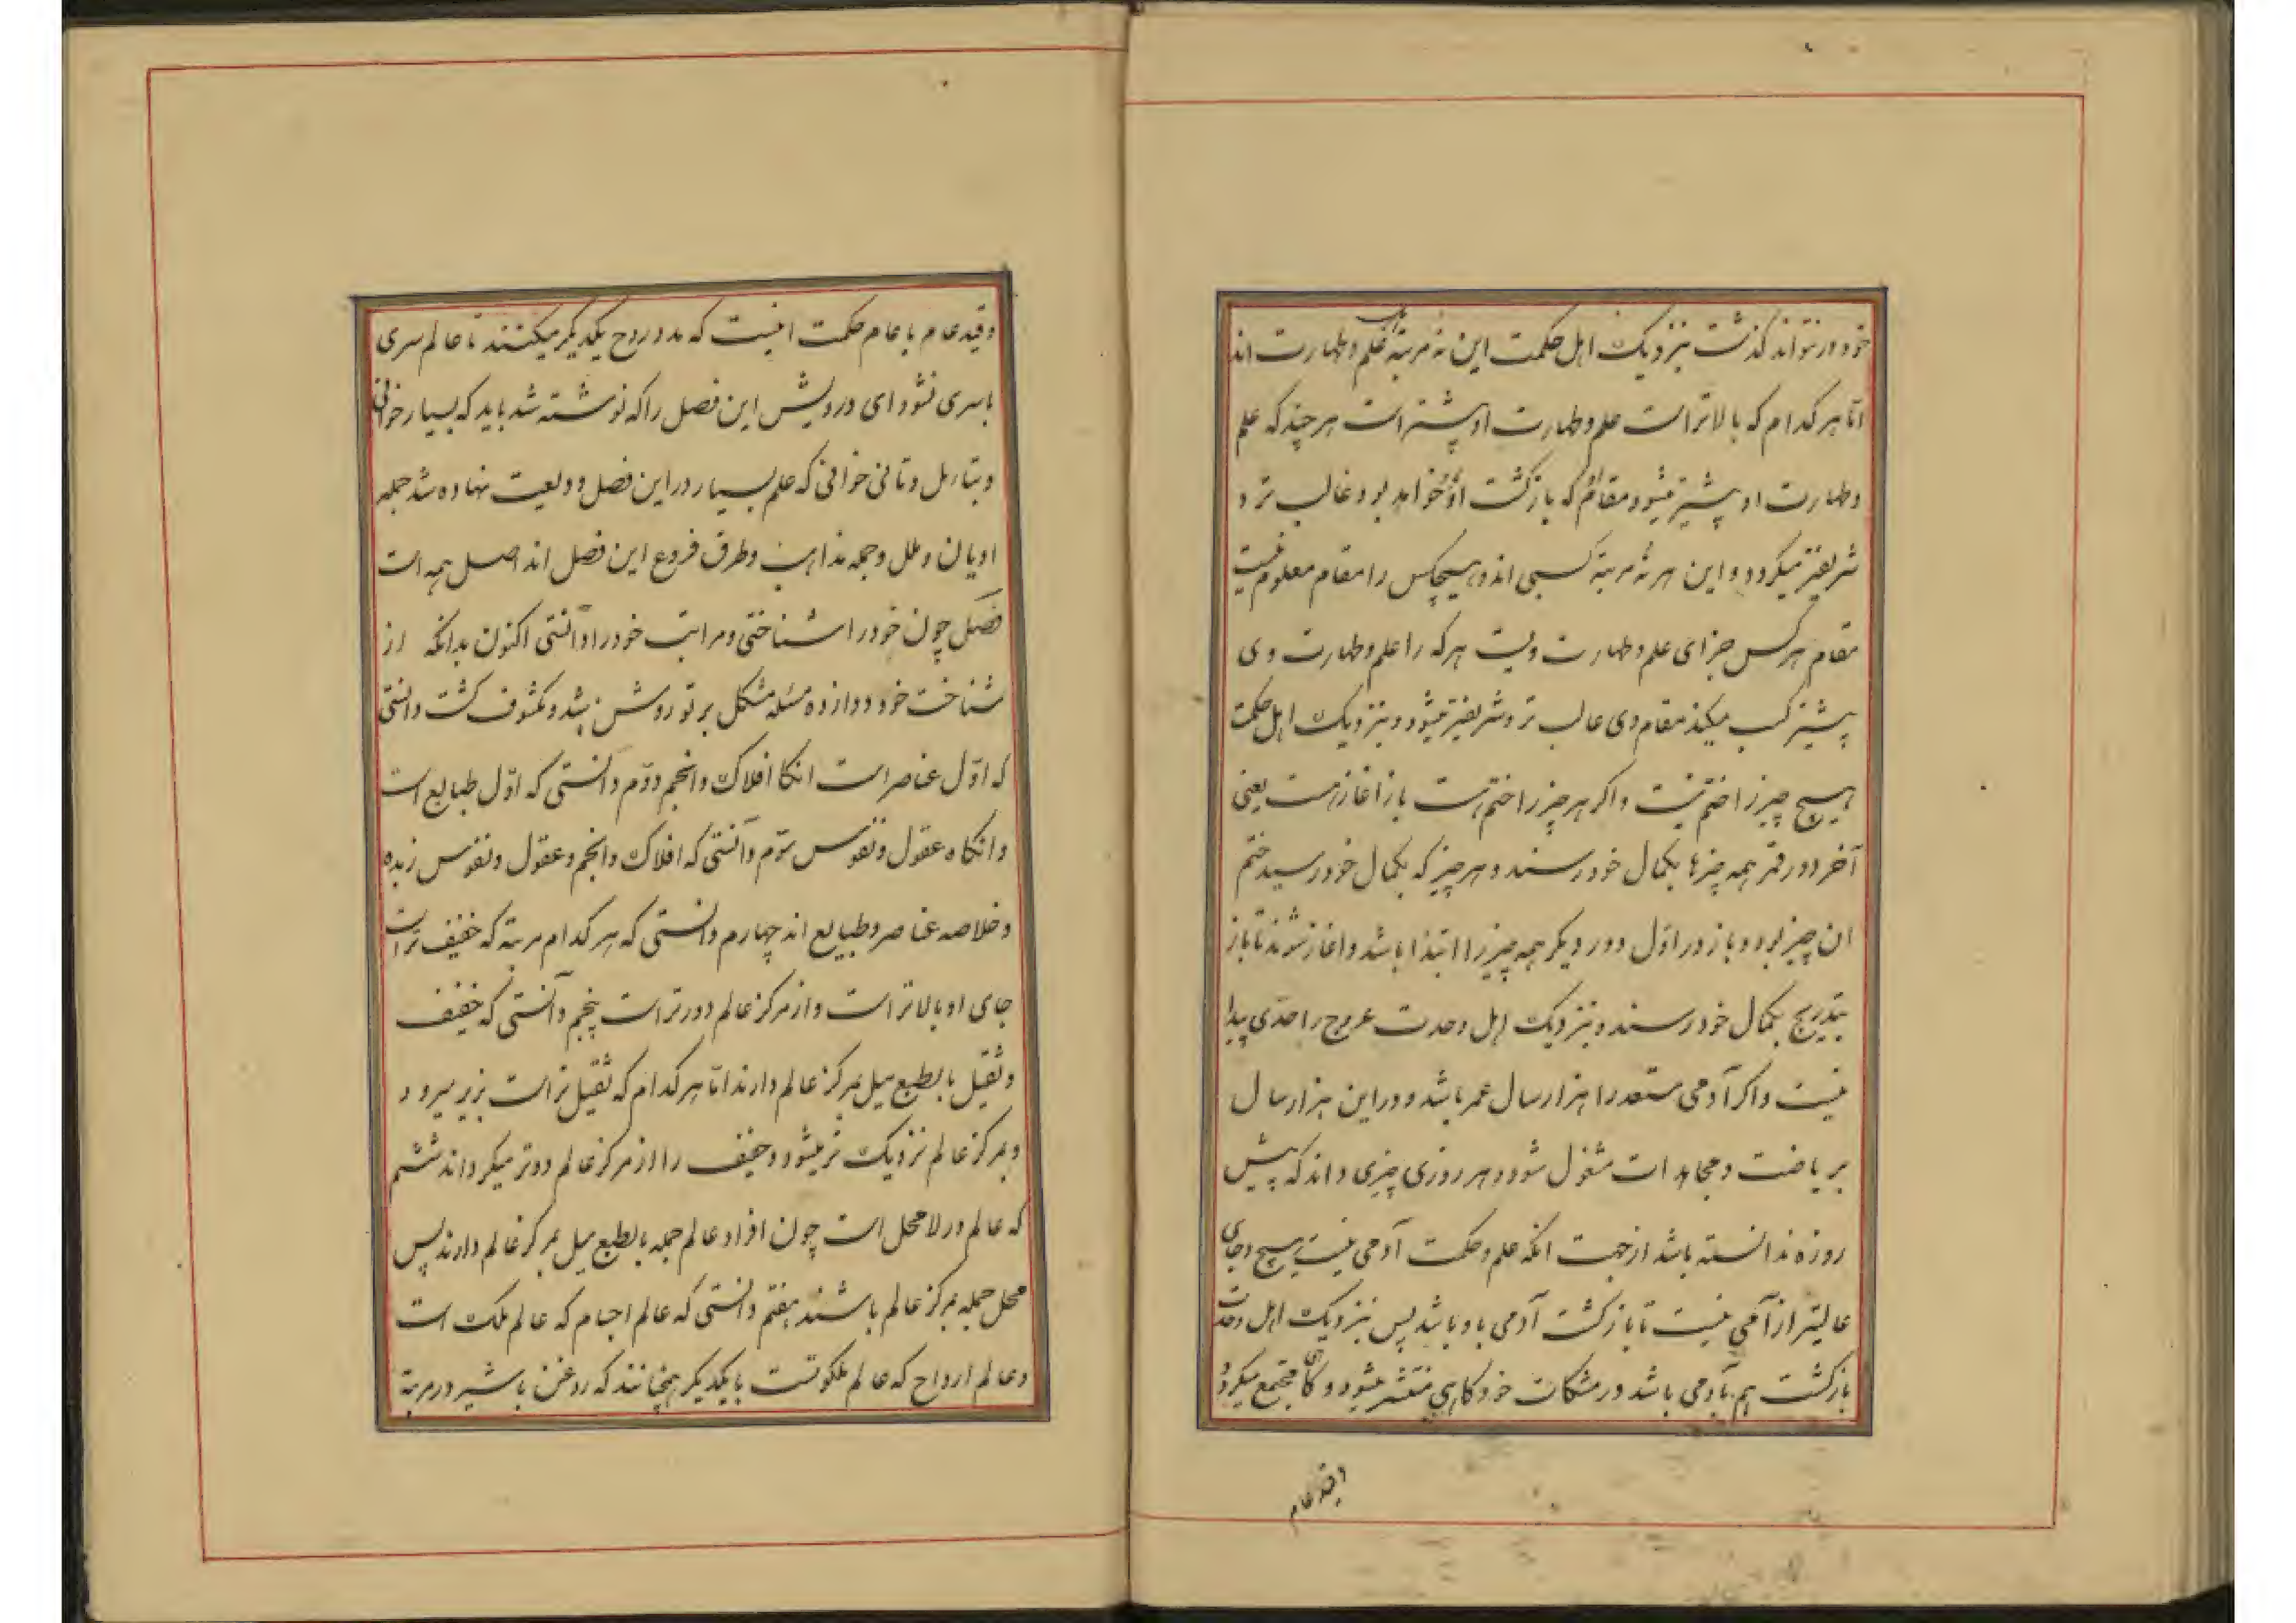 خود در نتواند گذشت بنزدیک اهل حکمت این نه مرتبه علم و طهارت اند
اما هر کدام که بالاتر است علم و طهارت او پیشتر است هر چند که علم
و طهارت او پیشتر میشود مقام که بازگشت او خواهد بود غالب تر و
شریفتر میگردد و این هر نه مرتبه کسبی اند و هیچکس را مقام معلوم نیست
مقام هر کس جزای علم و طهارت ویست هر که را علم و طهارت وی
پیشتر کسب میکند مقام وی عالب تر و شریفتر میشود و بنزدیک اهل حکمت
هیچ چیز را ختم نیست و اگر هر چیز را ختم هست باز اغاز هست یعنی
آخر دور قمر همه چیزها بکمال خود رسند و هر چیز که بکمال خود رسید ختم
ان چیز بود و باز در اول دور دیگر همه چیز را ابتدا باشد و اغاز شوند تا باز
بتدریج بکمال خود رسند و بنزدیک اهل وحدت عروج را حدی پیدا
نیست و اگر آدمی مستعد را هزار سال عمر باشد و در این هزار سال
بریاضت و مجاهدات مشغول شود و هر روزی چیزی داند که پیش
روزه ندانسته باشد از جهت انکه علم و حکمت آدمی نیست هیچ وجای
عالیتر از آدمی نیست تا بازگشت آدمی باو باشد پس بنزدیک اهل وحدت
بازگشت هم بآدمی باشد در مشکات خود کاهی منتشر میشود و کاهی مجتمع میگردد
وقید عام
وقید عام با عام حکمت اینست که مدد روح یکدیگر میکنند تا عالم سری
باسری نشود ای درویش این فصل را که نوشته شد باید که بسیار خوانی
و بتامل و تانی خوانی که علم بسیار در این فصل ودیعت نهاده شد جمله
ادیان و ملل و جمه مذاهب و طرق فروع این فصل اند اصل همه است
فصل چون خود را شناختی و مراتب خود را دانستی اکنون بدانکه از
شناخت خود دوازده مسئله مشکل بر تو روشن شد و مکشوف گشت دانستی
که اول عناصر است انکا افلاک و انجم دوم دانستی که اول طبایع است
و انکاه عقول و نفوس سوم دانستی که افلاک و انجم و عقول و نفوس زبده
و خلاصه عناصر و طبایع اند چهارم دانستی که هر کدام مرتبه که خفیف تر است
جای او بالاتر است و از مرکز عالم دورتر است پنجم دانستی که خفیف
و ثقیل بالطبع میل بمرکز عالم دارند اما هر کدام که ثقیل تر است بزیر میرود
و بمرکز عالم نزدیک تر میشود و خفیف را از مرکز عالم دوتر میگرداند ششم
که عالم در لا محل است چون افراد عالم جمله بالطبع میل بمرکز عالم دارند پس
محل جمله مرکز عالم باشند هفتم دانستی که عالم اجسام که عالم ملک است
و عالم ارواح که عالم ملکوتست با یکدیگر همچنانند که روغن با شیر در مرتبه